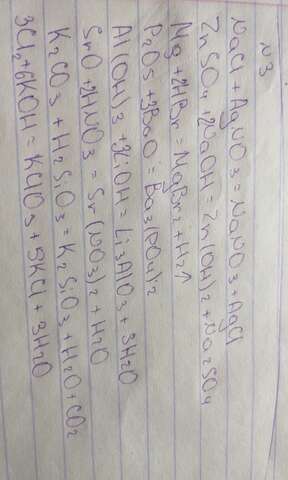 N3
NaCl + AgNO3 = NaNO3 + AgCl
ZnSO4 + 2NaOH = Zn(OH)2 + Na2SO4
Mg + 2HBr = MgBr2 + H2↑
P2O5 + 3BaO = Ba3(PO4)2
Al(OH)3 + 3LiOH = Li3AlO3 + 3H2O
SrO + 2HNO3 = Sr(NO3)2 + H2O
K2CO3 + H2SiO3 = K2SiO3 + H2O + CO2
3Cl2 + 6KOH = KClO3 + 5KCl + 3H2O